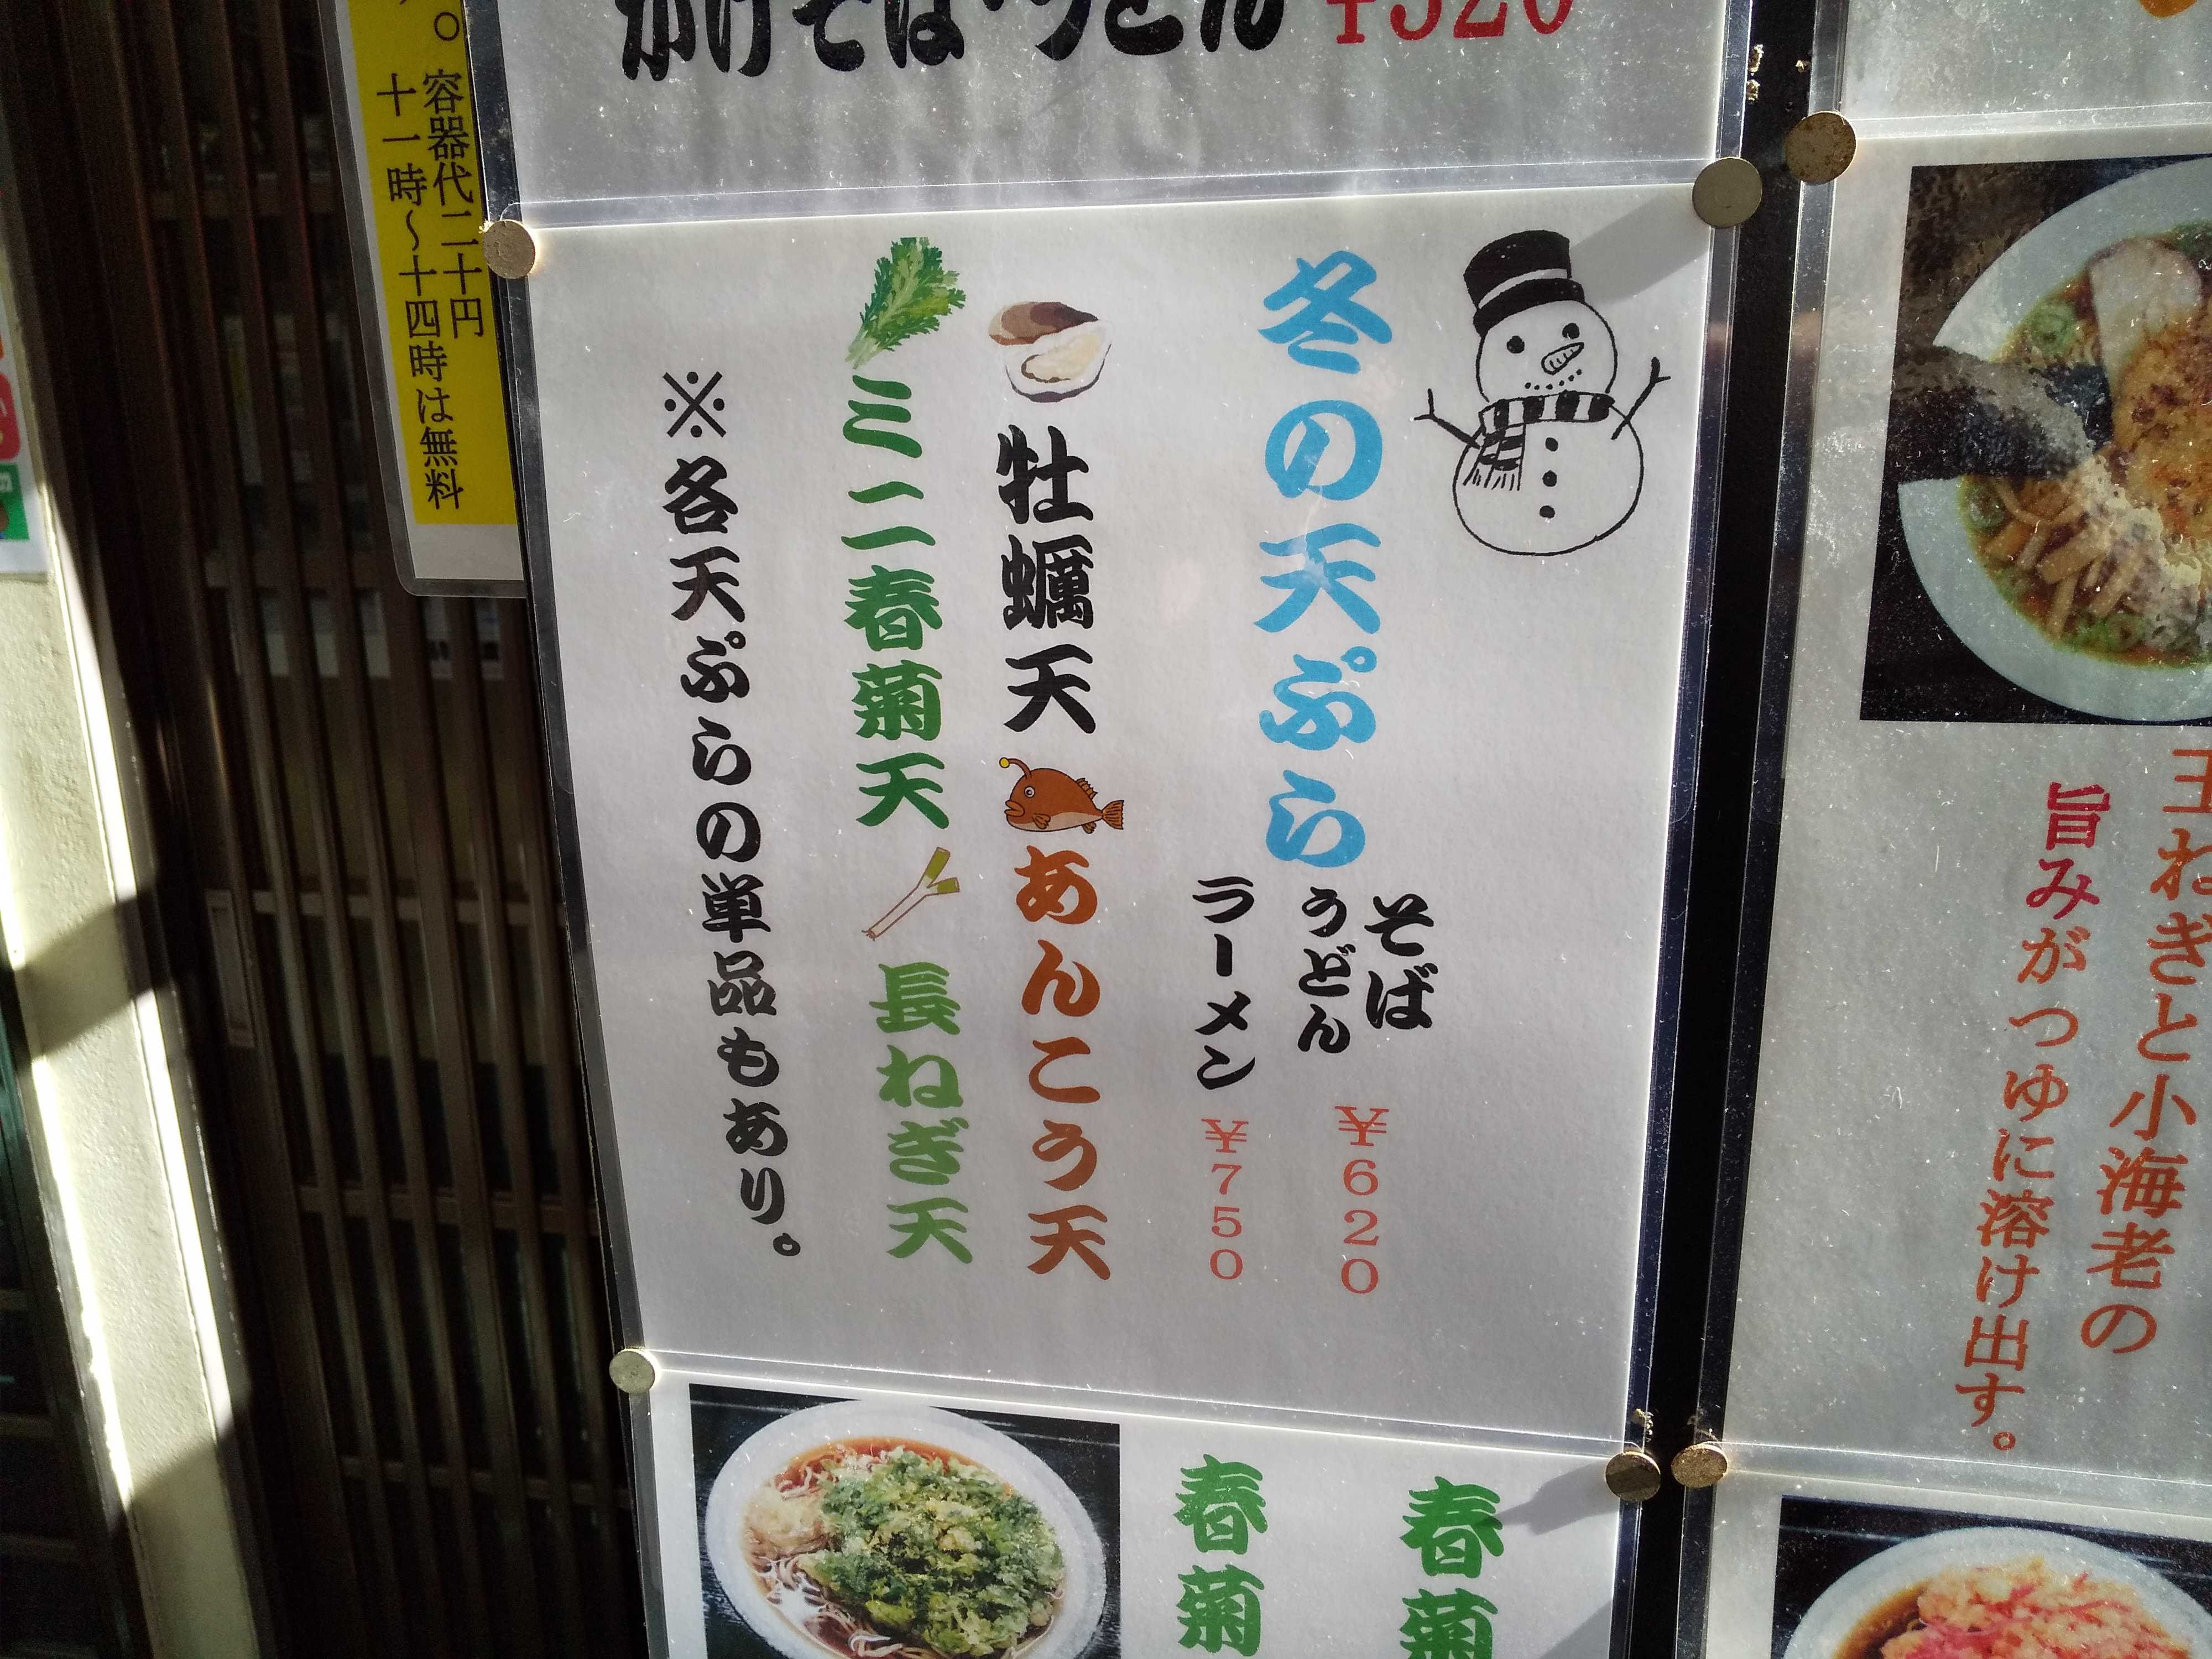 かけそば・うどん ¥320
容器代二十円
十一時～十四時は無料
冬の天ぷら
そば
うどん ¥620
ラーメン ¥750
牡蠣天 あんこう天
ミニ春菊天 長ねぎ天
※各天ぷらの単品もあり。
玉ねぎと小海老の
旨みがつゆに溶け出す。
春菊
春菊